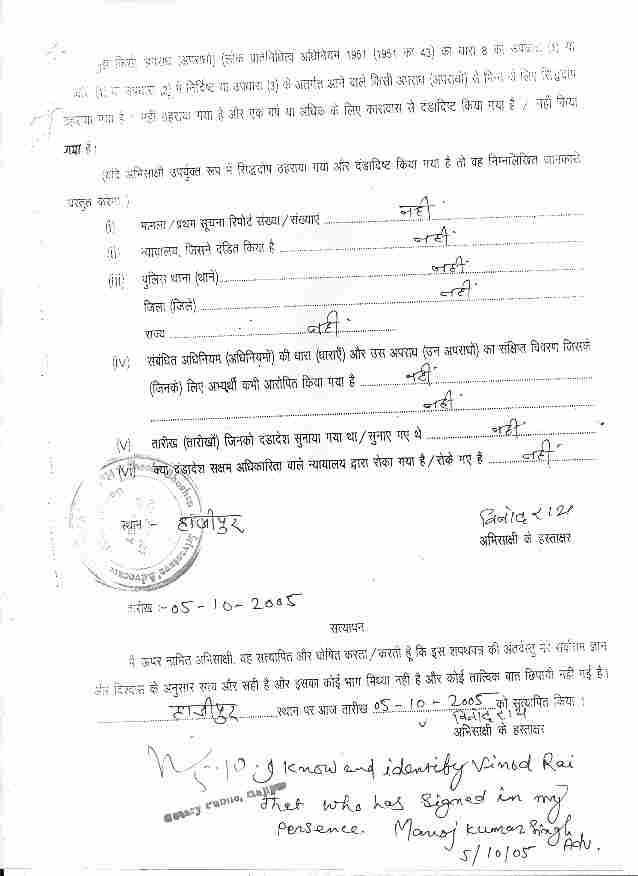 किसी अपराध (अपराधों) (लोक प्रतिनिधित्व अधिनियम 1951 (1951 का 43) की धारा 8 की उपधारा (1) या
उपधारा (2) में निर्दिष्ट या उपधारा (3) के अंतर्गत आने वाले किसी अपराध (अपराधों) से भिन्न के लिए सिद्धदोष
ठहराया गया है / नहीं ठहराया गया है और एक वर्ष या अधिक के लिए कारावास से दंडादिष्ट किया गया है / नहीं किया
गया है।
(यदि अभिसाक्षी उपर्युक्त रूप में सिद्धदोष ठहराया गया और दंडादिष्ट किया गया है तो वह निम्नलिखित जानकारी
प्रस्तुत करेगा।)
(i) मामला/प्रथम सूचना रिपोर्ट संख्या/संख्याएं नहीं
(ii) न्यायालय, जिसने दंडित किया है नहीं
(iii) पुलिस थाना (थाने) नहीं
जिला (जिले) नहीं
राज्य नहीं
(iv) संबंधित अधिनियम (अधिनियमों) की धारा (धाराएँ) और उस अपराध (उन अपराधों) का संक्षिप्त विवरण जिसके
(जिनके) लिए अभ्यर्थी कभी आरोपित किया गया है नहीं
नहीं
(v) तारीख (तारीखें) जिनको दंडादेश सुनाया गया था/सुनाए गए थे नहीं
(vi) क्या दंडादेश सक्षम अधिकारिता वाले न्यायालय द्वारा रोका गया है/रोके गए है नहीं
स्थान :- हाजीपुर
विनोद राय
अभिसाक्षी के हस्ताक्षर
तारीख :- 05-10-2005
सत्यापन
मैं ऊपर नामित अभिसाक्षी, यह सत्यापित और घोषित करता/करती हूँ कि इस शपथपत्र की अंतर्वस्तु मेरे सर्वोत्तम ज्ञान
और विश्वास के अनुसार सत्य और सही है और इसका कोई भाग मिथ्या नहीं है और कोई तात्विक बात छिपायी नहीं गई है।
हाजीपुर स्थान पर आज तारीख 05-10-2005 को सत्यापित किया।
विनोद राय
अभिसाक्षी के हस्ताक्षर
I know and identify Vinod Rai
that who has signed in my
persence. Manoj Kumar Singh
Adv.
5/10/05
Notary Public, Hajipur